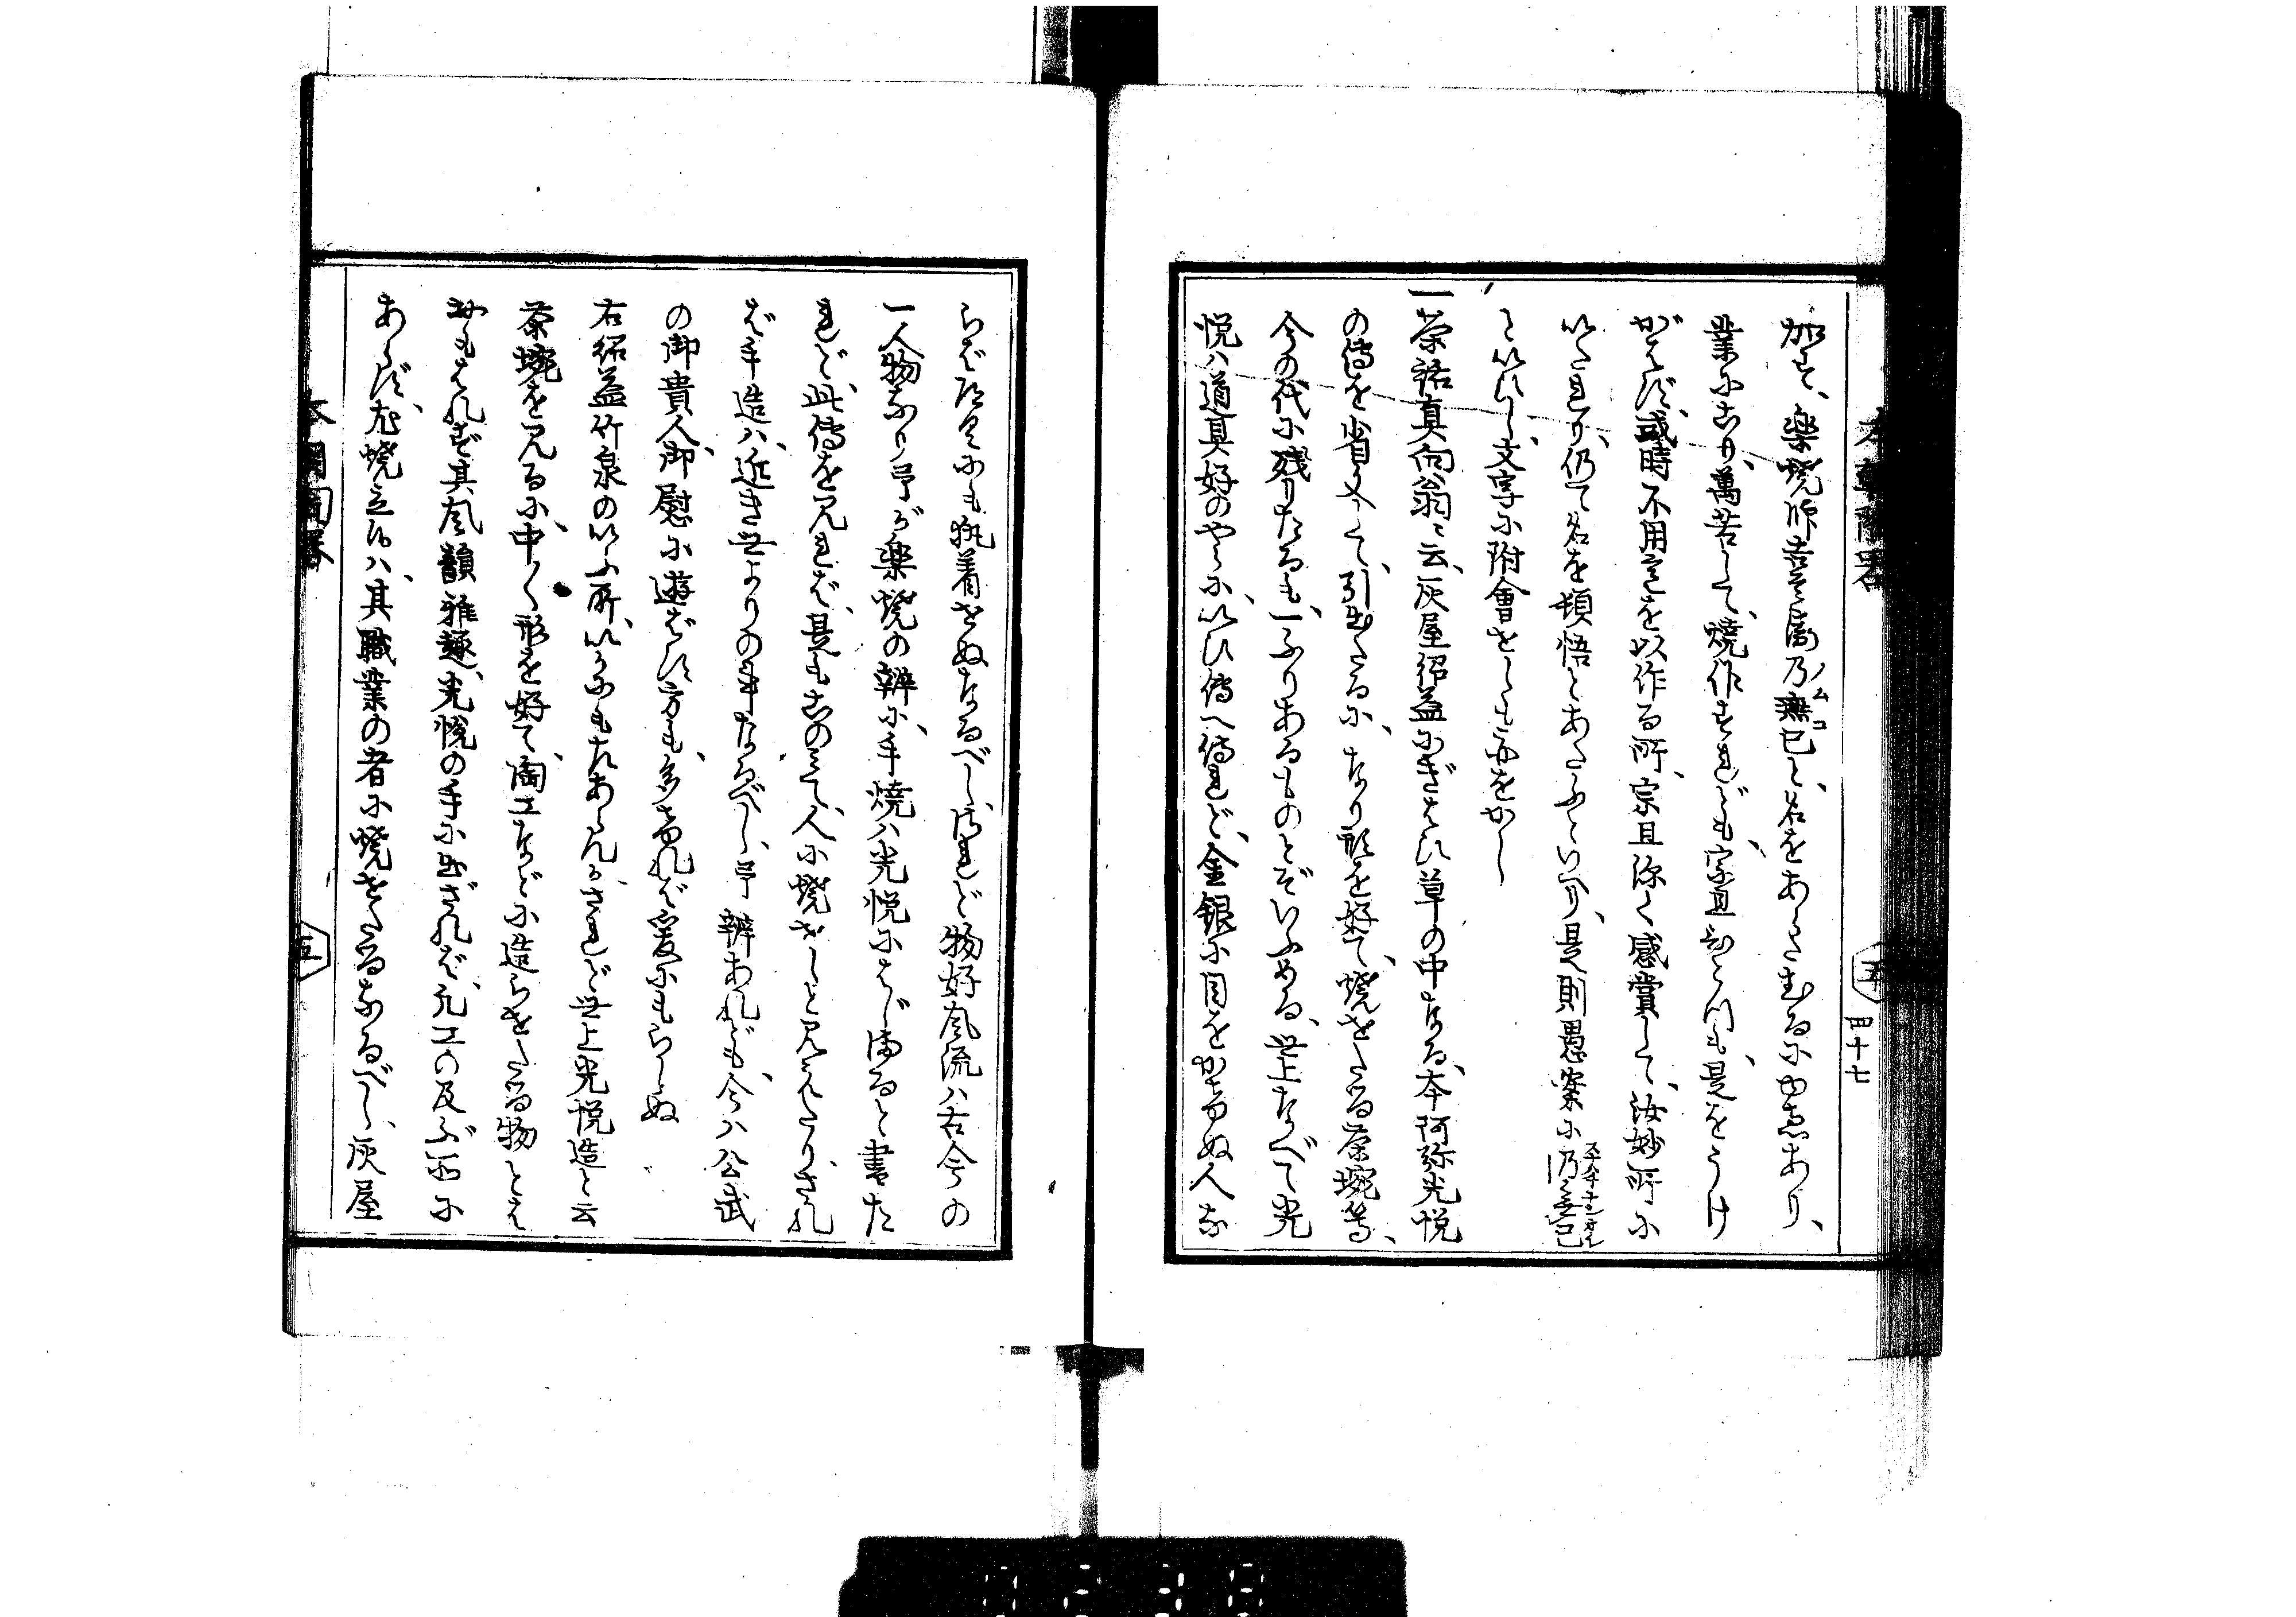 加ふ、楽焼師吉兵衛乃無已と、名をあらたむるに由来あり、
業にこり、萬苦して、焼作すれども、宗旦むつ川も、是をうけ
がはず、或時不用意を以作る所、宗旦深く感賞して、汝妙所に
いたれり、仍て名を頓悟とあたふといへり、是則愚案に
といひし、文字に附會せしもをかし
一茶話真向翁ニ云、灰屋紹益にぎはひ草の中なる、本阿弥光悦
の傳を省文して、引出たるに、なり形を好て、焼せたる茶埦等、
今の代に残りたるも、一ふりあるものとぞいふめる、世上なべて光
悦ハ道具好のやうに、いひ傳へ侍れど、金銀に目をかけぬ人な
らば、道具にも執着せぬなるべし、されど物好風流ハ古今の
一人物なり予が楽焼の辨に、手焼ハ光悦にはじまると書た
れど、此傳を見れば、是もこのみて、人に焼せしと見えたり、され
ば手造ハ、近き世よりの事なるべし、予辨あれども、今ハ公武
の御貴人、御慰に遊ばす方も、多ければ爰にもらしぬ
右紹益竹泉のいふ所、いかにもたあらんか、されど世上光悦造と云
茶埦を見るに、中〱形を好て、陶工などに造らせたる物とは
おもはれず其風韻雅趣、光悦の手に出ざれば、凡工の及ぶ所に
あらず、尤焼立ハ、其職業の者に焼せたるなるべし、灰屋
四十七